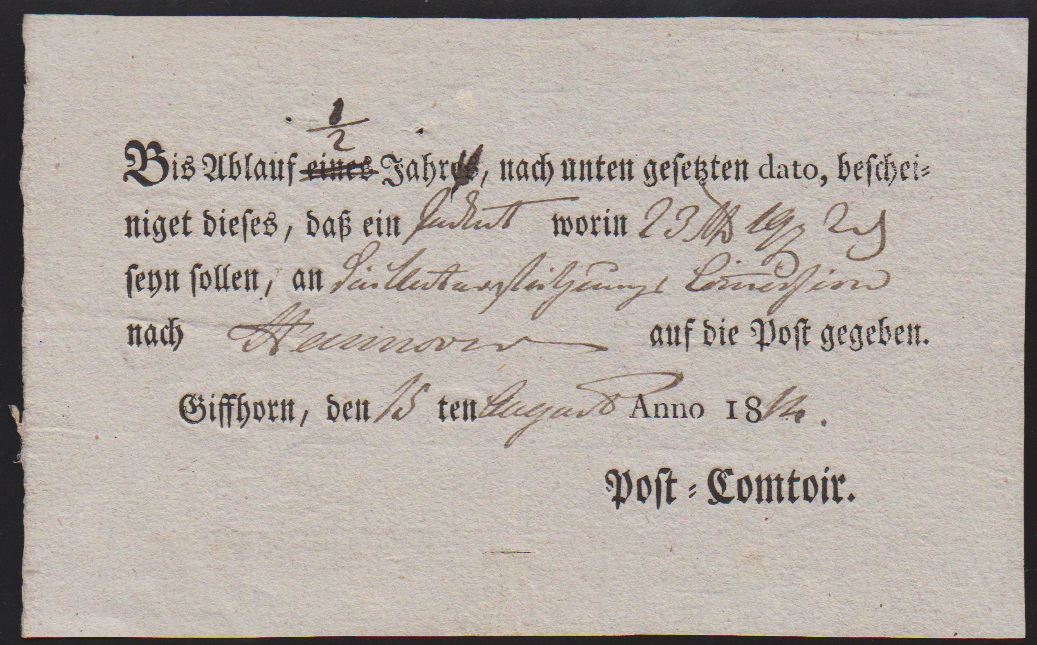 1/2
Bis Ablauf eines Jahres, nach unten gesetzten dato, beschei-
niget dieses, daß ein worin 23 19 2
seyn sollen, an Unterstützungs
nach Hannover auf die Post gegeben.
Giffhorn, den 15 ten August Anno 18
Post-Comtoir.